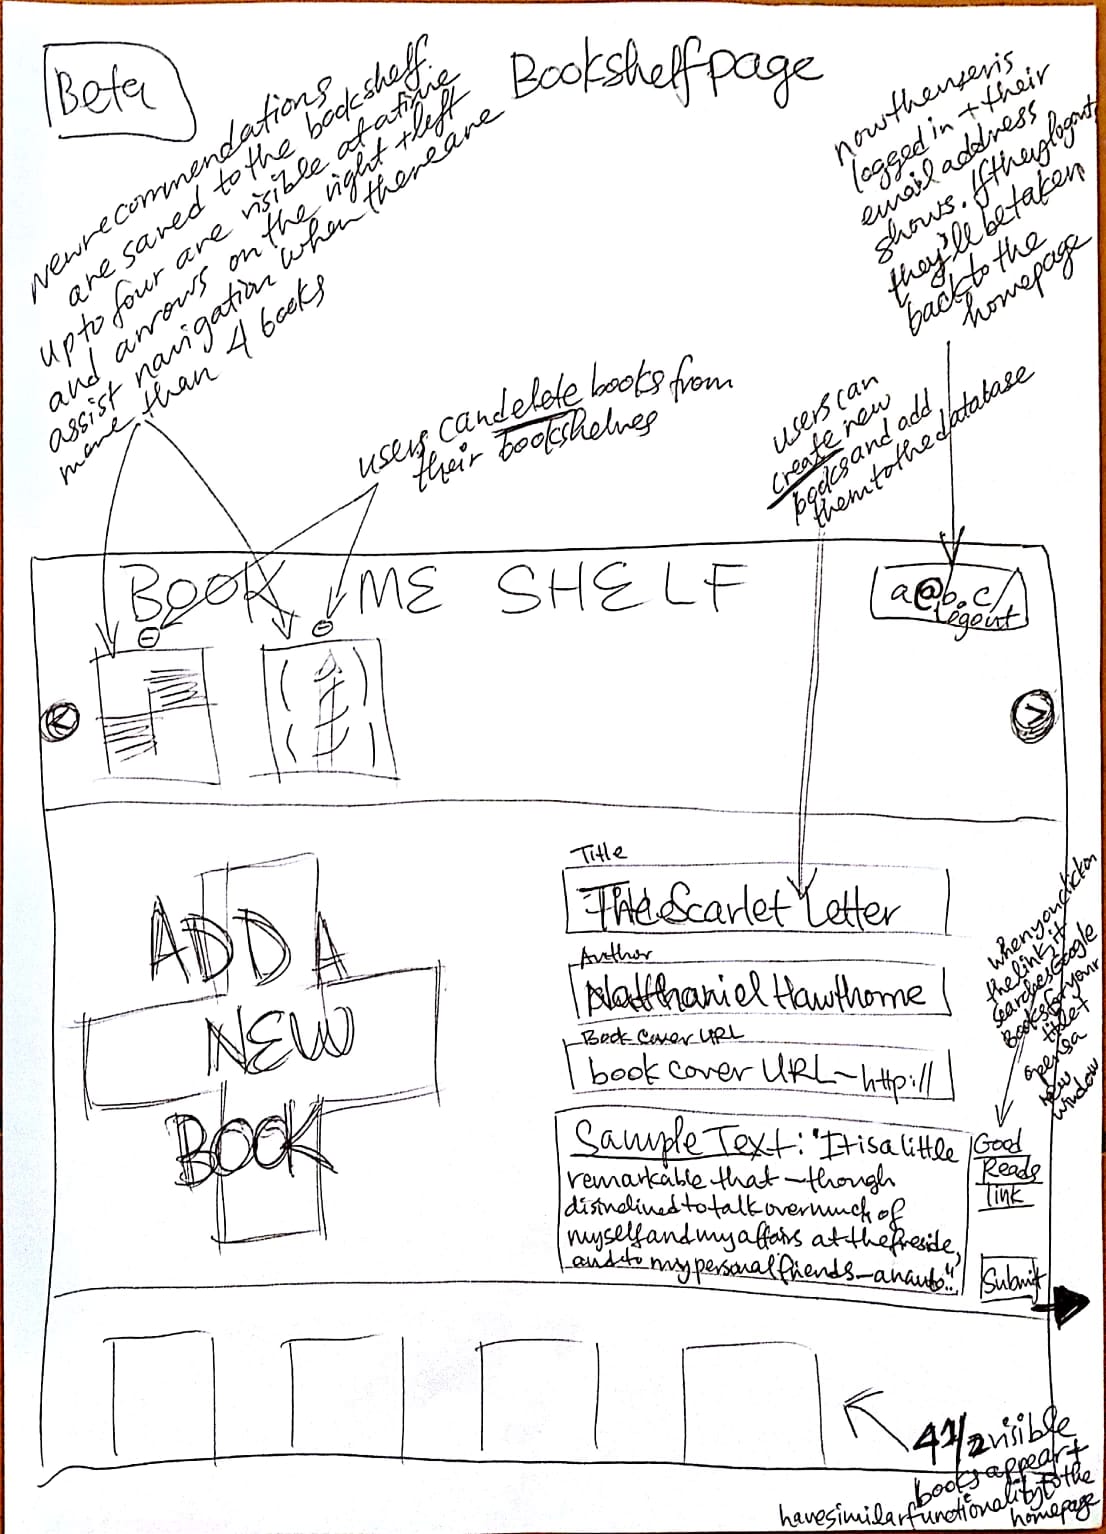 Beta
Bookshelf page
New recommendations
are saved to the bookshelf.
up to four are visible at a time
and arrows on the right + left
assist navigation when there are
more than 4 books
now the user is
logged in + their
email address
shows. If they logout,
they'll be taken
back to the
homepage
users can delete books from
their bookshelves
users can
create new
books and add
them to the database
BOOK ME SHELF
a@b.c/
logout
<
>
ADD A
NEW
BOOK
Title
The Scarlet Letter
Author
Nathaniel Hawthorne
Book Cover URL
book cover URL - http://
Sample Text: "It is a little
remarkable that - though
disinclined to talk overmuch of
myself and my affairs at the fireside,
and to my personal friends - an auto."
when you click on
the link it
searches Google
Books for your
title +
opens a
new
window
Good
Reads
link
Submit
4 1/2 visible
books appear +
have similar functionality to the
homepage